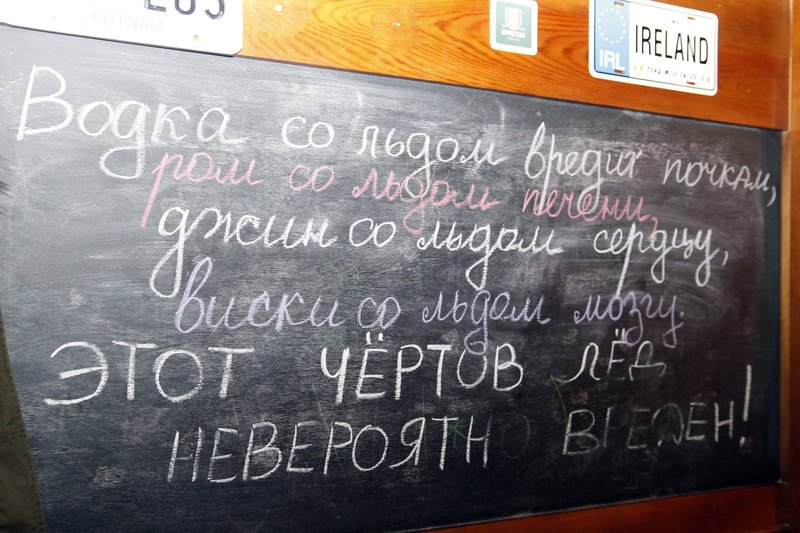 PUTNAM
IRL
IRELAND
Водка со льдом вредит почкам,
ром со льдом печени,
джин со льдом сердцу,
виски со льдом мозгу.
ЭТОТ ЧЁРТОВ ЛЁД
НЕВЕРОЯТНО ВРЕДЕН!